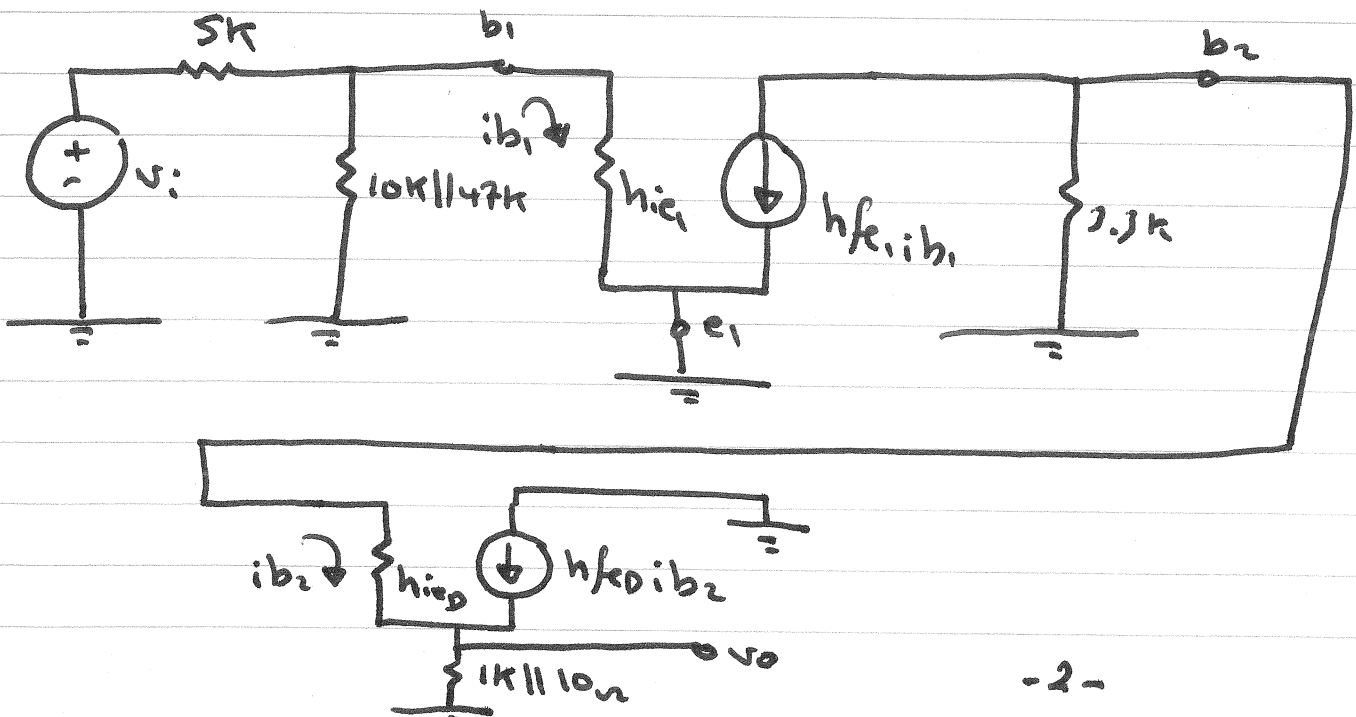 5K
b1
b2
+
-
vi
10K||47K
ib1
hie1
hfe1ib1
3.3K
e1
ib2
hieD
hfeDib2
vo
1K||10Ω
-2-